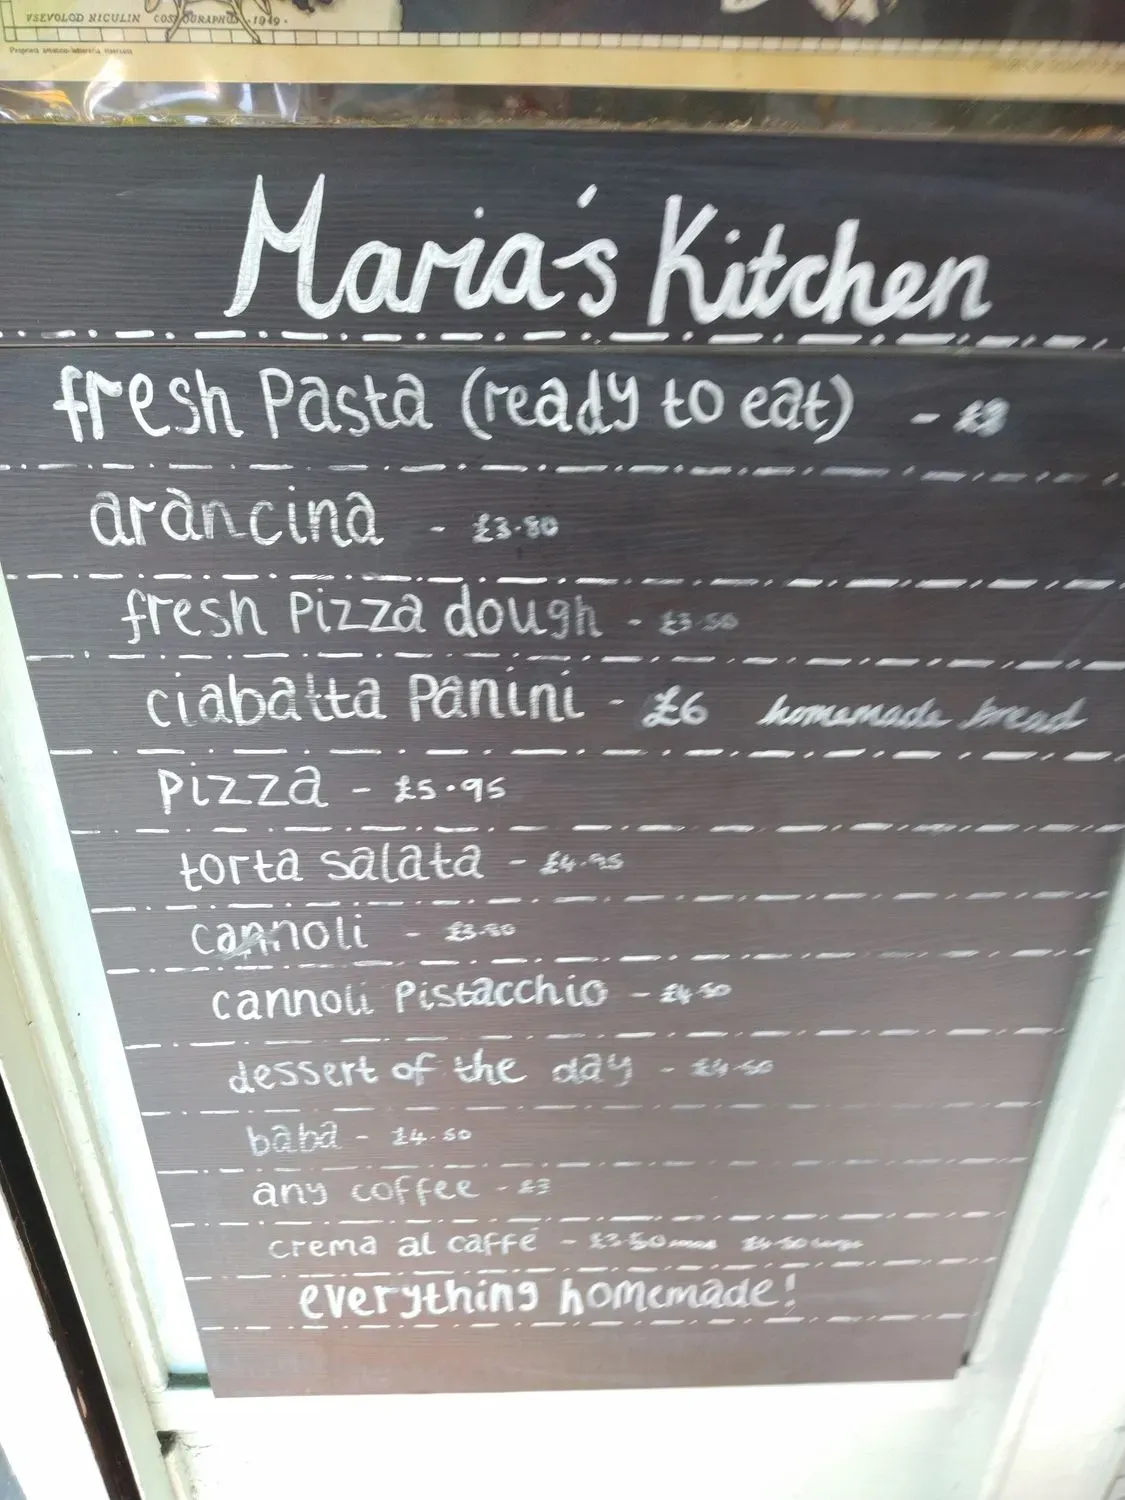 VSEVOLOD NICULIN COSMOGRAPHUS · 1949 ·
Maria's Kitchen
fresh Pasta (ready to eat) -
arancina - £3.80
fresh Pizza dough - £3.50
ciabatta Panini - £6 homemade bread
Pizza - £5.95
torta salata - £4.95
cannoli - £3.80
cannoli Pistacchio - £4.50
dessert of the day - £4.50
baba - £4.50
any coffee - £3
crema al caffé - £3.50 £4.50 large
everything homemade!